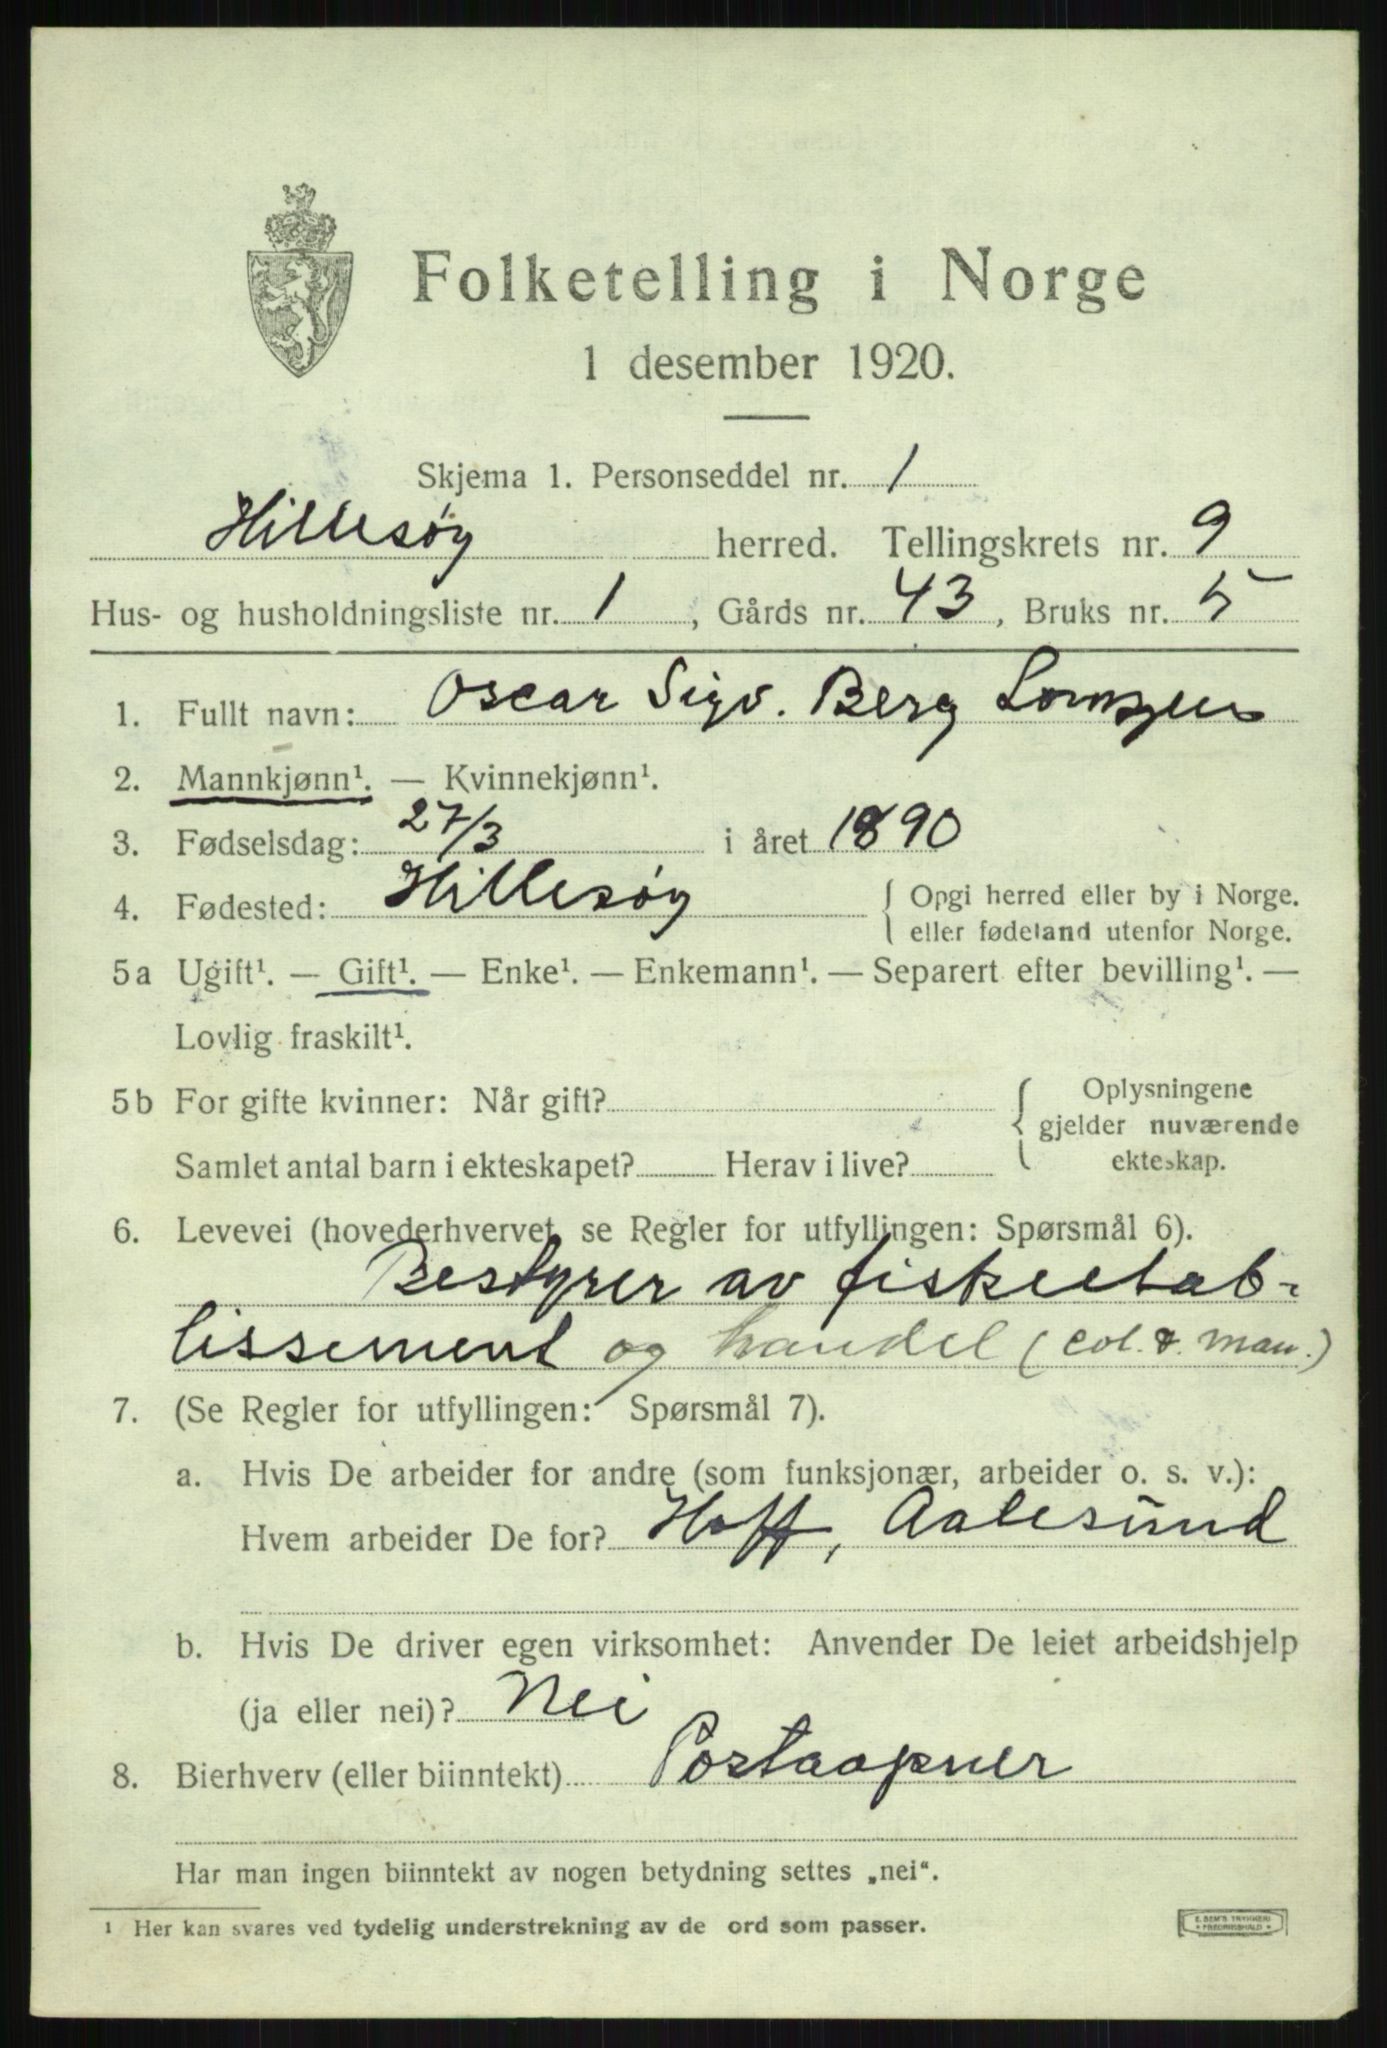 Folketelling i Norge
1 desember 1920.
Skjema 1. Personseddel nr. 1
Hillesøy herred. Tellingskrets nr. 9
Hus- og husholdningsliste nr. 1, Gårds nr. 43, Bruks nr. 5
1. Fullt navn: Oscar Sigv. Berg Lorntzen
2. Mannkjønn¹. — Kvinnekjønn¹.
3. Fødselsdag: 27/3 i året 1890
4. Fødested: Hillesøy { Opgi herred eller by i Norge.
eller fødeland utenfor Norge.
5a Ugift¹. — Gift¹. — Enke¹. — Enkemann¹. — Separert efter bevilling¹. —
Lovlig fraskilt¹.
5b For gifte kvinner: Når gift? { Oplysningene
gjelder nuværende
Samlet antal barn i ekteskapet? Herav i live? ekteskap.
6. Levevei (hovederhvervet, se Regler for utfyllingen: Spørsmål 6).
Bestyrer av fisketab-
lissement og handel (col. & man.)
7. (Se Regler for utfyllingen: Spørsmål 7).
a. Hvis De arbeider for andre (som funksjonær, arbeider o. s. v.):
Hvem arbeider De for? Hoff, Aalesund
b. Hvis De driver egen virksomhet: Anvender De leiet arbeidshjelp
(ja eller nei)? Nei
8. Bierhverv (eller biinntekt) Postaapner
Har man ingen biinntekt av nogen betydning settes „nei“.
¹ Her kan svares ved tydelig understrekning av de ord som passer.
E. SEM'S TRYKKERI
FREDRIKSHALD